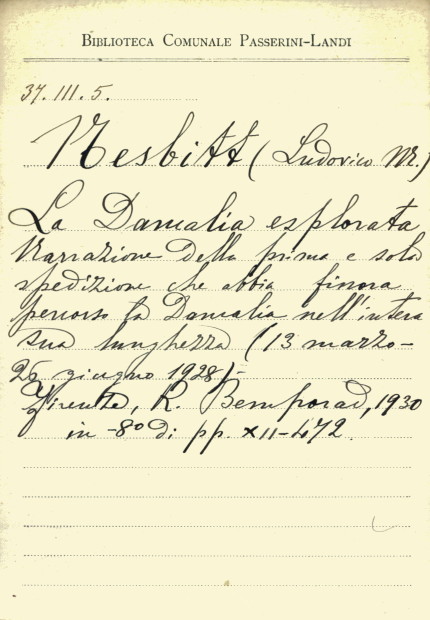 BIBLIOTECA COMUNALE PASSERINI-LANDI
37.III.5.
Nesbitt (Ludovico M.)
La Dancalia esplorata
Narrazione della prima e sola
spedizione che abbia finora
percorso la Dancalia nell'intera
sua lunghezza (13 marzo-
26 giugno 1928)-
Firenze, R. Bemporad, 1930
in -8° di pp. XII-472.